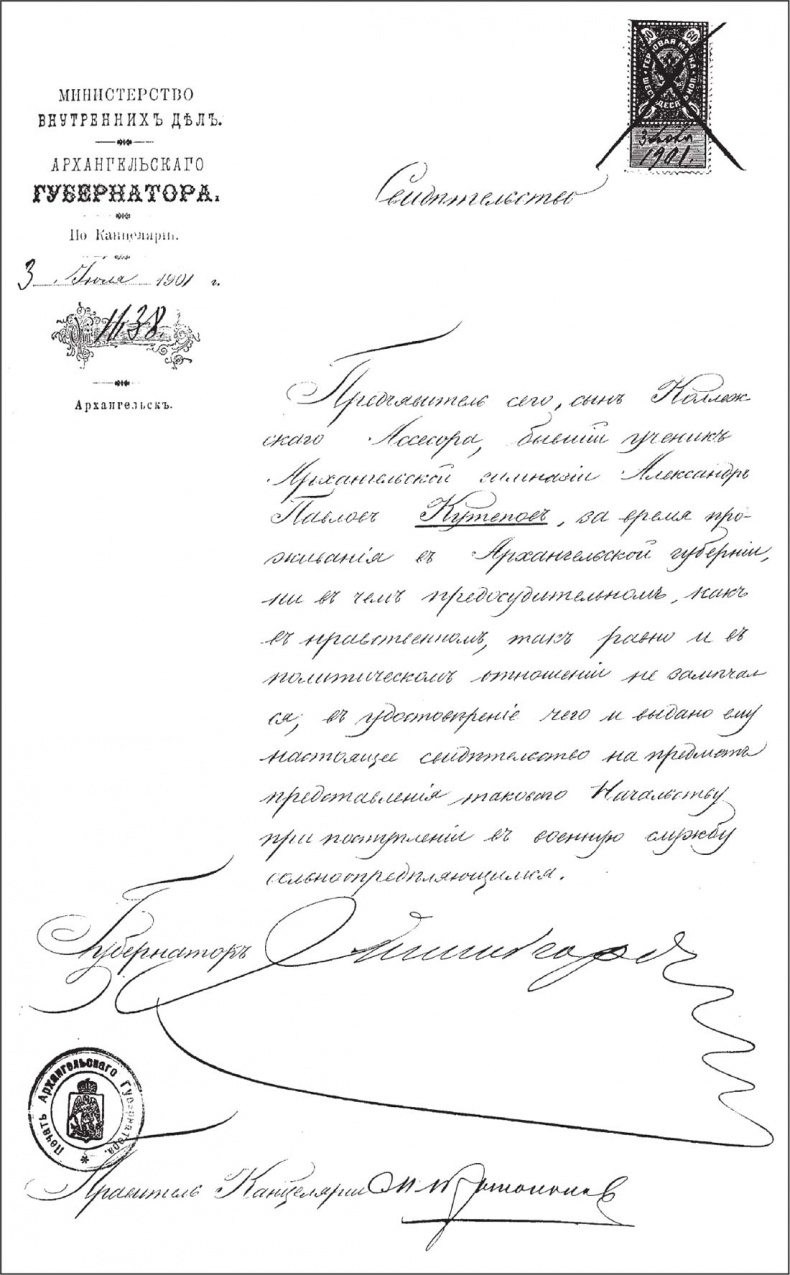 МИНИСТЕРСТВО
ВНУТРЕННИХЪ ДѢЛЪ.
АРХАНГЕЛЬСКАГО
ГУБЕРНАТОРА.
По Канцеляріи.
3 Іюля 1901 г.
№ 1138.
Архангельскъ.
60 60
ГЕРБОВАЯ МАРКА
ШЕСТЬДЕСЯТЪ КОП.
3 Іюля
1901.
Свидѣтельство
Предъявитель сего, сынъ Коллеж-
скаго Ассесора, бывшій ученикъ
Архангельской гимназіи Александръ
Павловъ Кутеповъ, за время про-
живанія въ Архангельской губерніи,
ни въ чемъ предосудительномъ, какъ
въ нравственномъ, такъ равно и въ
политическомъ отношеніи не замѣчал-
ся, въ удостовѣреніе чего и выдано ему
настоящее свидѣтельство на предметъ
представленія таковаго Начальству
при поступленіи въ военную службу
вольноопредѣляющимся.
Губернаторъ
Печать Архангельскаго Губернатора.
Правитель Канцеляріи